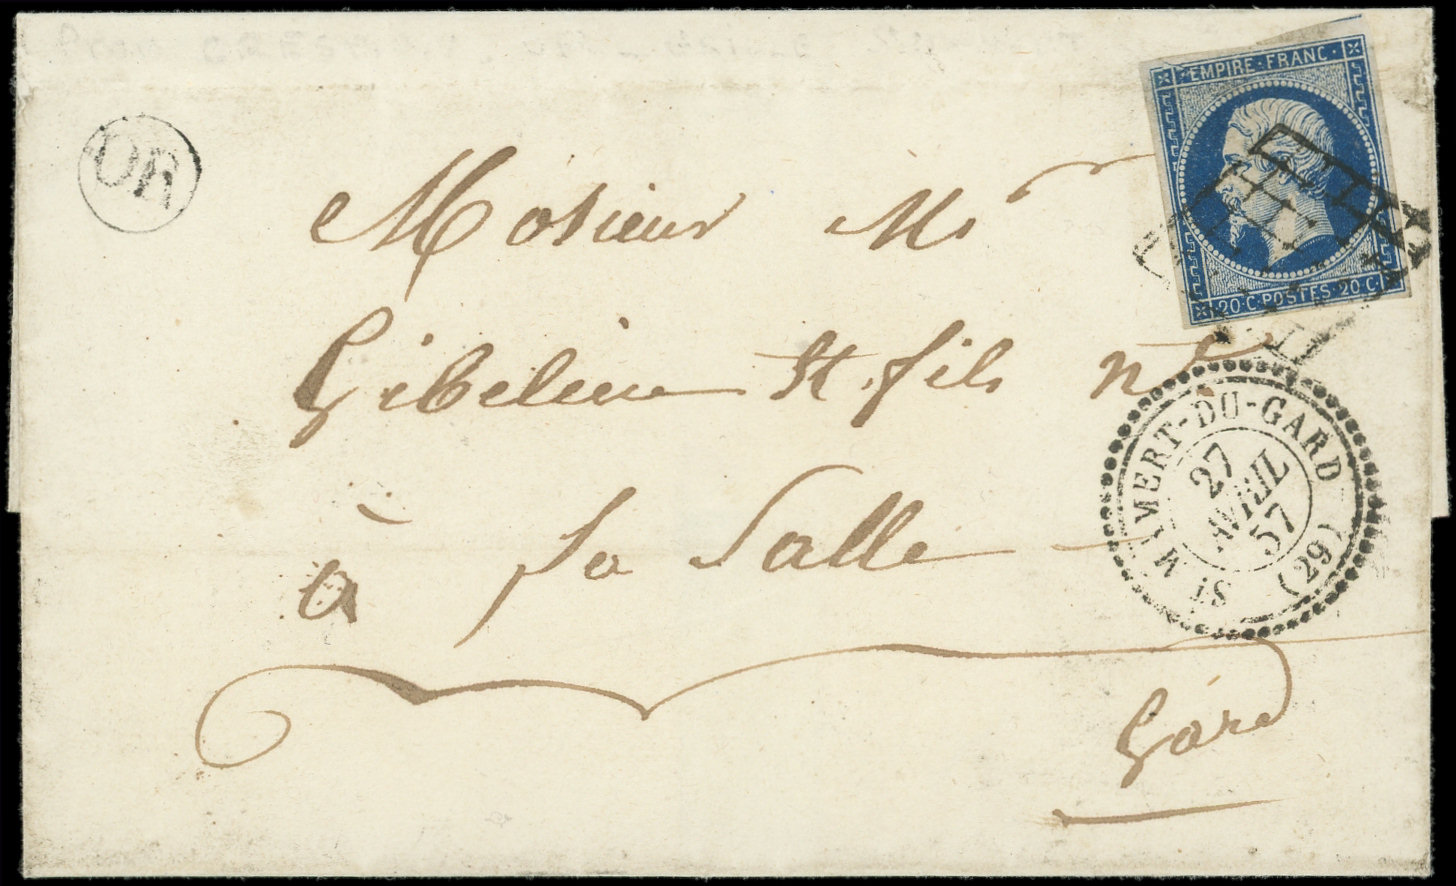 OR
EMPIRE·FRANC·
20·C·POSTES·20·C·
Mosieur Mr
Gibelin et fils nt
à La Salle
Gard
St MAMERT-DU-GARD (29)
27
AVRIL
57